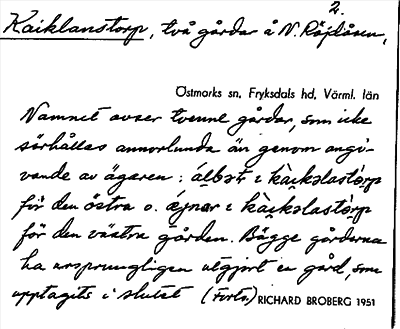 2.
Kaiklanstorp, två gårdar å N. Röjdåsen,
Östmarks sn, Fryksdals hd, Värml. län
Namnet avser tvenne gårdar, som icke
särhållas annorlunda än genom angi-
vande av ägaren: álbət i kàɪkəlastɔrp
för den östra o. ǽjnar i kàɪkəlastɔrp
för den västra gården. Bägge gårdarna
ha ursprungligen utgjort en gård, som
upptagits i slutet (Forts.) RICHARD BROBERG 1951